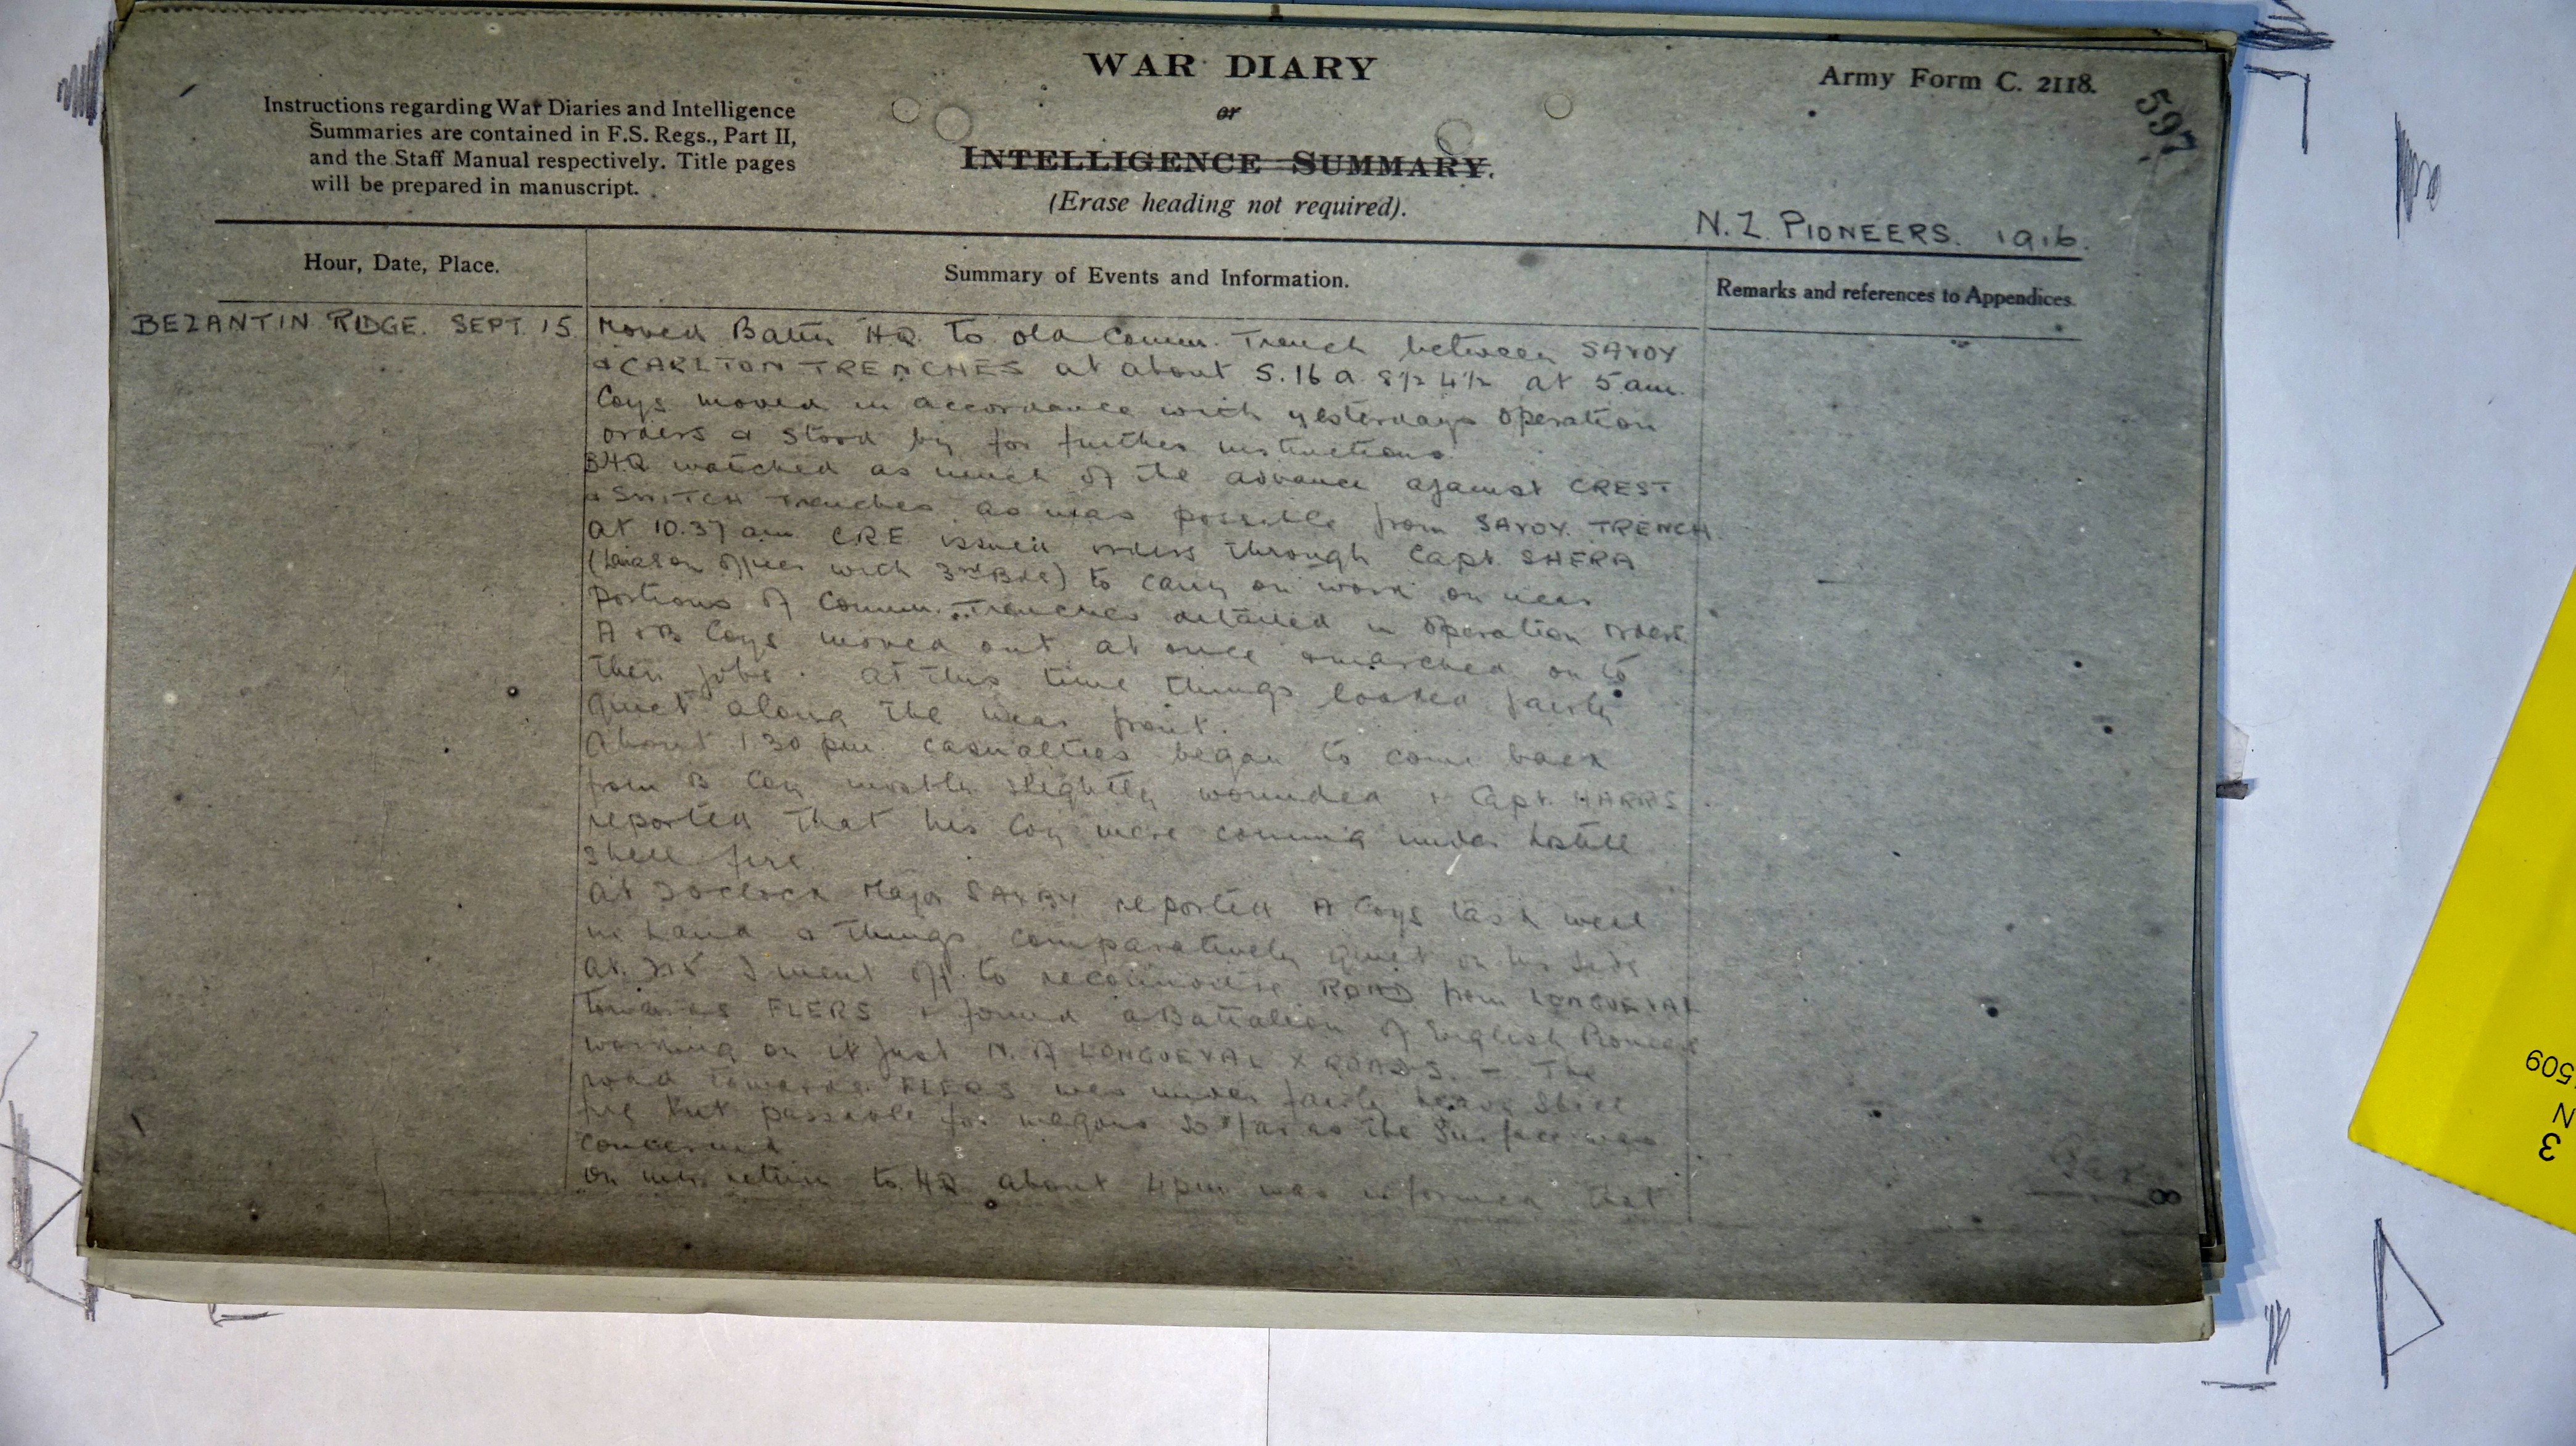 WAR DIARY
or
INTELLIGENCE SUMMARY.
(Erase heading not required).
Army Form C. 2118.
597
Instructions regarding War Diaries and Intelligence
Summaries are contained in F.S. Regs., Part II,
and the Staff Manual respectively. Title pages
will be prepared in manuscript.
N.Z. PIONEERS. 1916.
Hour, Date, Place.
Summary of Events and Information.
Remarks and references to Appendices.
BEZANTIN RIDGE. SEPT. 15
Moved Battn HQ to old Comm. Trench between SAVOY
& CARLTON TRENCHES at about S.16 a 8½ 4½ at 5 am.
Coys moved in accordance with yesterdays operation
orders & stood by for further instructions
BHQ watched as much of the advance against CREST
& SWITCH Trenches as was possible from SAVOY TRENCH.
At 10.37 am CRE issued orders through Capt. SHERA
(Liaison officer with 3rd Bde) to carry on work on near
portions of Comm. Trenches detailed in operation orders.
A & B Coys moved out at once & marched on to
their jobs. At this time things looked fairly
quiet along the near front.
About 1 30 pm. casualties began to come back
from B Coy mostly slightly wounded & Capt. HARRIS
reported that his Coy were coming under hostile
shell fire
At 2 oclock Major SAXBY reported A Coys task well
in hand & things comparatively quiet on his side
At 215 I went off to reconnoitre ROAD from LONGUEVAL
towards FLERS & found a Battalion of English Pioneers
working on it just N. of LONGUEVAL X ROADS. - The
road towards FLERS was under fairly heavy shell
fire but passable for wagons so far as the surface was
concerned
On my return to HQ about 4 pm was informed that
8
509
N
3